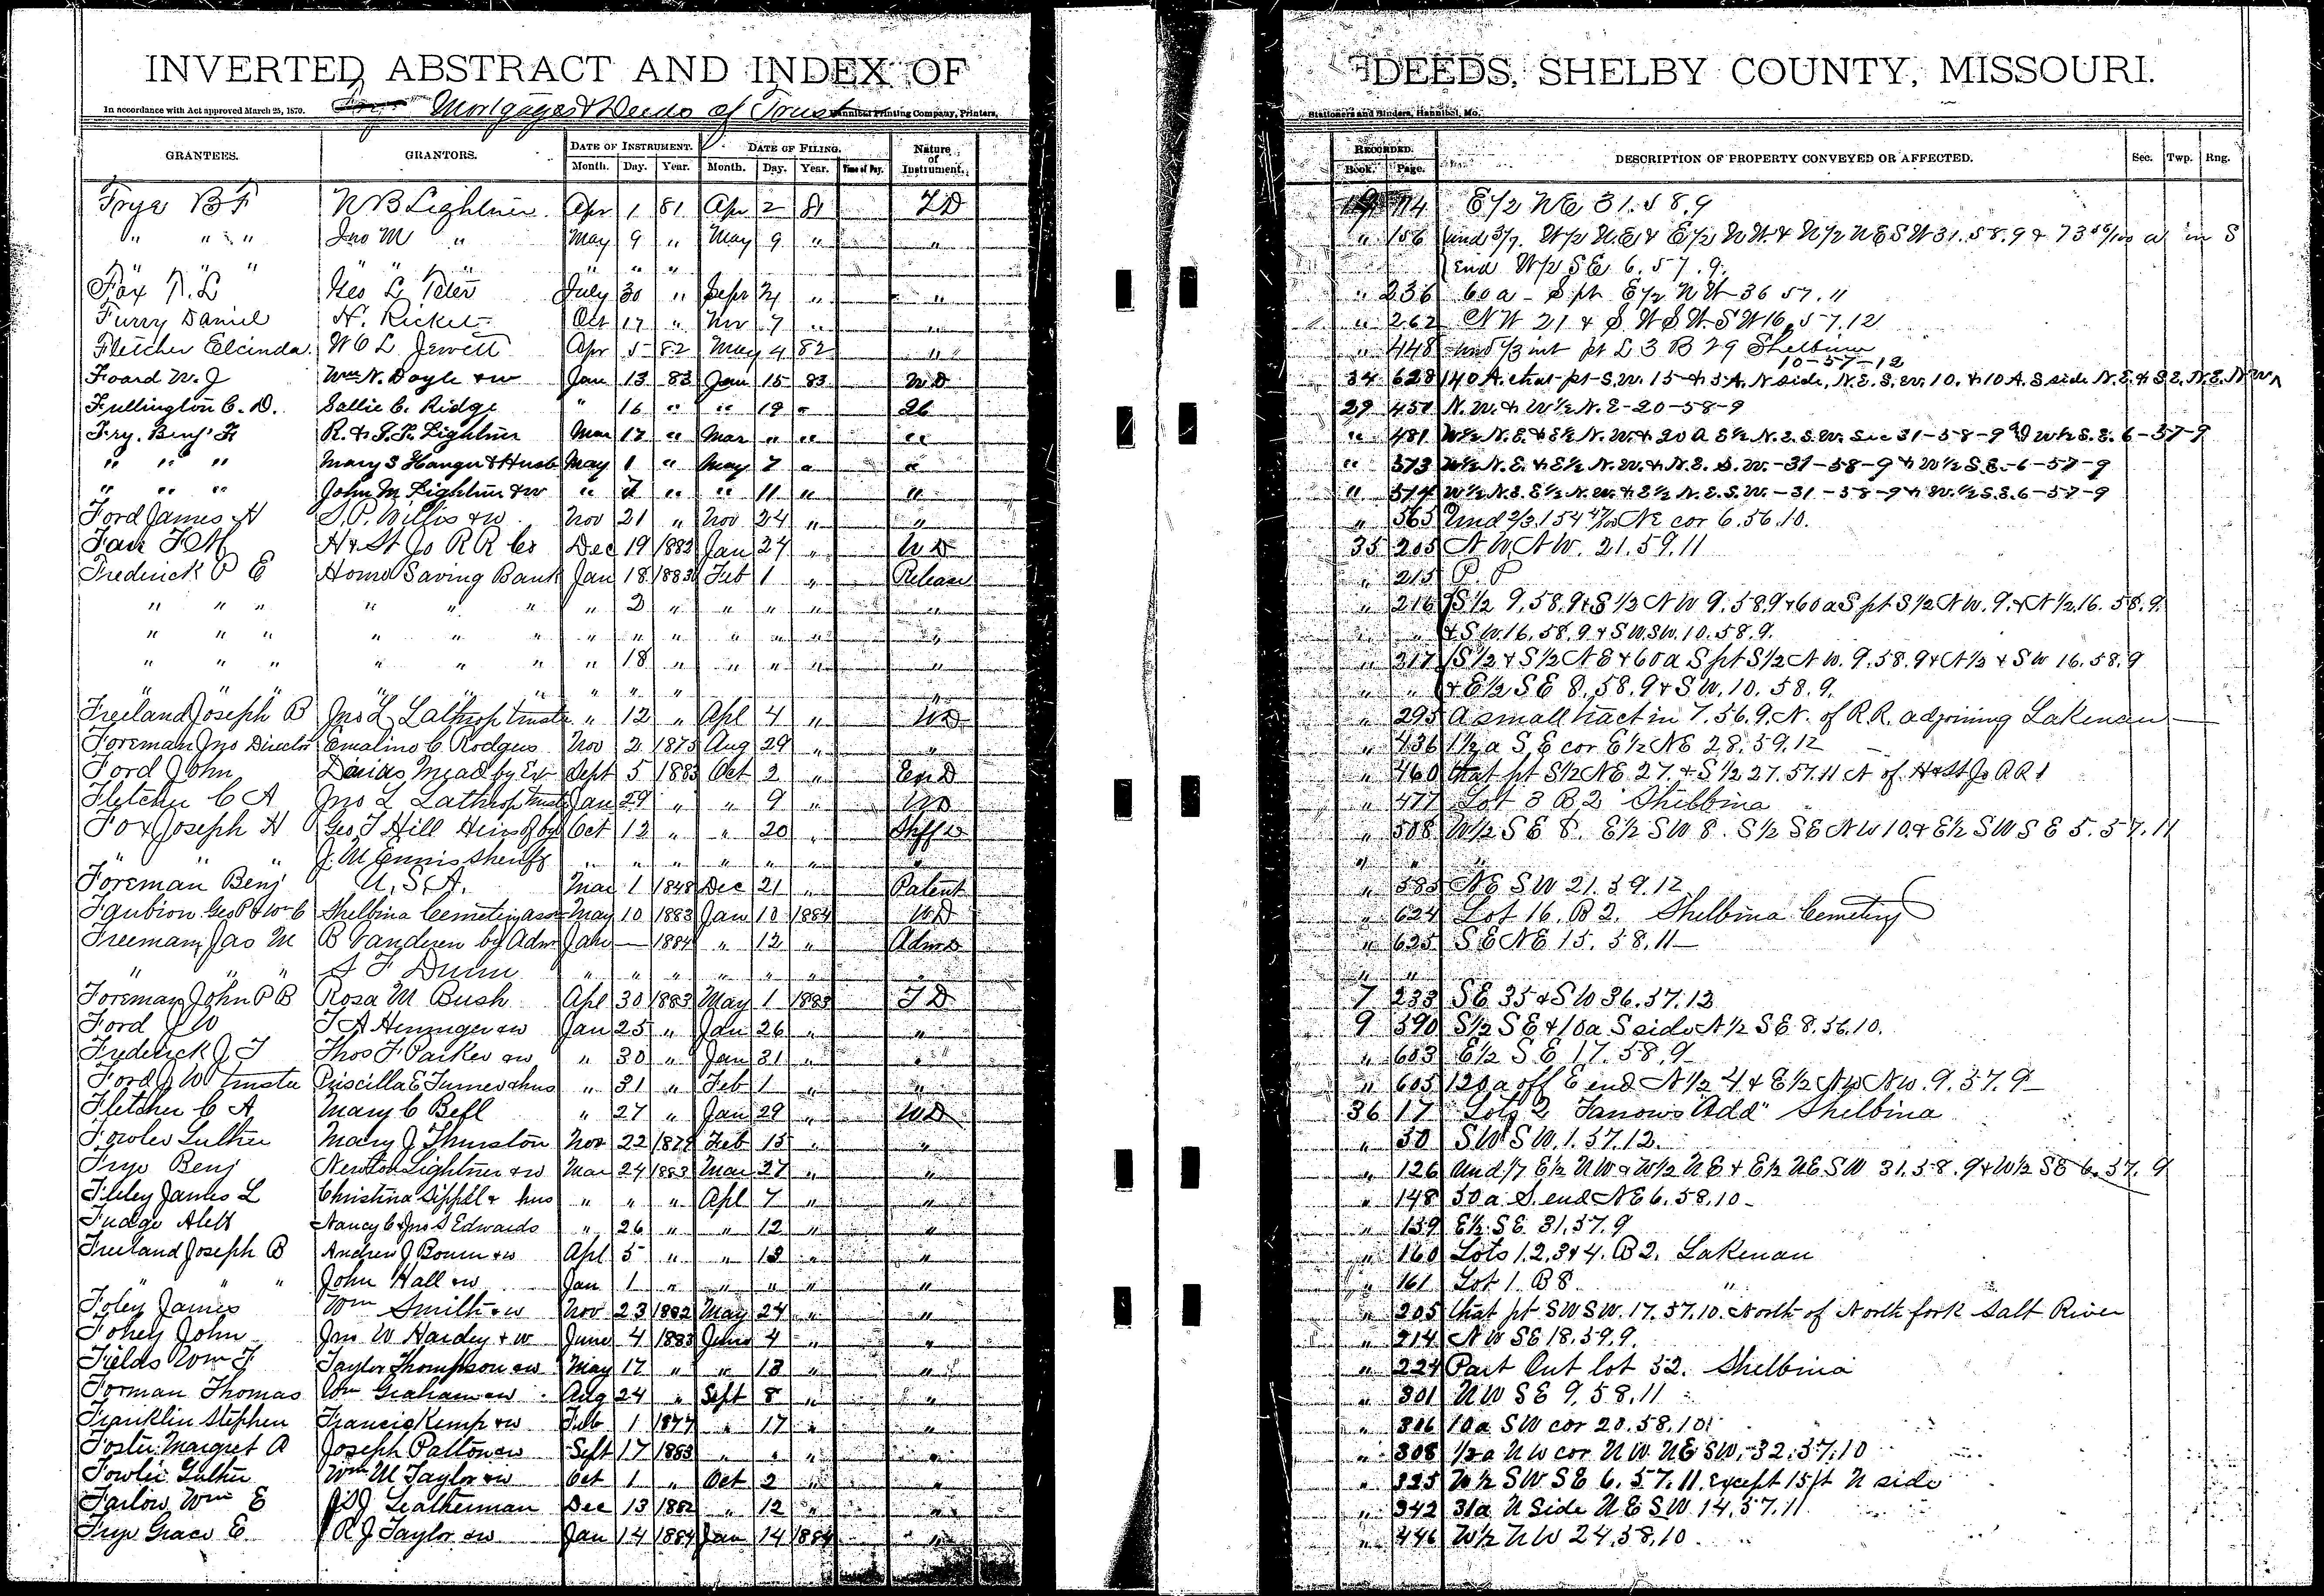 INVERTED ABSTRACT AND INDEX OF DEEDS, SHELBY COUNTY, MISSOURI.
In accordance with Act approved March 25, 1870. Mortgages & Deeds of Trust Hannibal Printing Company, Printers, Stationers and Binders, Hannibal, Mo.
GRANTEES. GRANTORS. DATE OF INSTRUMENT. DATE OF FILING. Nature of Instrument. RECORDED. DESCRIPTION OF PROPERTY CONVEYED OR AFFECTED. Sec. Twp. Rng.
Month. Day. Year. Month. Day. Year. Time of Day. Book. Page.
Frye B F N B Lightner Apr 1 81 Apr 2 81 TD 114 E½ NE 31.58.9
" " " Jno M " May 9 " May 9 " " " 156 und 3/7 W½ N.E & E½ NW & N½ NESW 31.58.9 & 73 a in S
" " " " " " " " " end W½ SE 6.57.9.
Fox T.L Geo L Peter July 30 " Sept " " " 236 60 a - S pt E½ NW 36 57.11
Furry Daniel H. Ricket Oct 17 " Nov 7 " " " 262 NW 21 & S W S W. S W 16, 57.12
Fletcher Elcinda W C L Jewett Apr 5 82 May 4 82 " " 448 und ⅓ int pt L 3 B 29 Shelbina
10-57-12
Foard W. J Wm N. Doyle & w Jan 13 83 Jan 15 83 W D 34 628 140 A. that pt S.W. 15 & 5 A. N side, N.E. S.W. 10. & 10 A. S side N.E. & S E. N.E. N W
Fullington C. D. Sallie C. Ridge " 16 " " 19 " 29 451 N. W. & W½ N. E-20-58-9
Fry. Benj F R. & S. F. Lightner Mar 17 " Mar " " " " 481 W½ N.E. & E½ N. W. & 20 A E½ N.E.S.W. Sec 31-58-9 W½ S.E. 6-57-9
" " " Mary S Hanger & Husb May 1 " May 7 " " " 573 W½ N.E. & E½ N.W. & N.E. S.W.-31-58-9 & W½ S E.-6-57-9
" " " John M Lightner & w " 7 " " 11 " " " 574 W½ N.E. E½ N.W. & E½ N.E.S.W.-31-58-9 & W.½ S.E. 6-57-9
Ford James H S. P. Willis & w Nov 21 " Nov 24 " " " 565 Und 2/3 154 47/100 NE cor 6.56.10.
Farr F M H & St Jo R R Co Dec 19 1882 Jan 24 " W D 35 205 N W, N W. 21.59.11
Frederick P E Home Saving Bank Jan 18 1883 Feb 1 " Release " 215 P. P
" " " " " " " 2 " " " " " " 216 S½ 9.58.9 & S½ N W 9.58.9 & 60 a S pt S½ N W. 9. & N½ 16. 58.9.
" " " " " " " " " " " " " " " & S W. 16.58.9 & S W.S W. 10.58.9.
" " " " " " " 18 " " " " " " 217 S½ & S½ N E & 60 a S pt S½ N W. 9.58.9 & N½ & S W 16.58.9
" " " " " " " " " " " " & E½ S E 8.58.9 & S W. 10. 58.9.
Freeland Joseph B Jno L Lathrop trustee " 12 " Apl 4 " W D " 295 A small tract in 7.56.9. N. of R.R. adjoining Lakenan
Foreman Jno Director Emaline C Rodgers Nov 2 1875 Aug 29 " " " 436 1½ a S E cor E½ NE 28.59.12
Ford John Darias Mead by Ex Sept 5 1883 Oct 2 " Ex D " 460 that pt S½ NE 27. & S½ 27.57.11 N of H & St Jo R R
Fletcher C A Jno L Lathrop trustee Jan 29 " " 9 " W D " 477 Lot 3 B 2 Shelbina
Fox Joseph H Geo T Hill Heirs of by Oct 12 " " 20 " Shff D " 508 W½ S E 8. E½ SW 8. S½ SE NW 10. & E½ SW S E 5.57.11
" " " J. M Ennis Sheriff " " " " " " " " "
Foreman Benj U. S. A. Mar 1 1848 Dec 21 " Patent " 585 NE SW 21.59.12
Faubion Geo P & Wm C Shelbina Cemetery assn May 10 1883 Jan 10 1884 W D " 624 Lot 16. B 2. Shelbina Cemetery
Freeman, Jas M B Vanderen by Adm Jan — 1884 " 12 " Adm D " 625 S E N E 15. 58.11
" " " S F Dunn " " " " " " " " "
Foreman John P B Rosa M Bush Apl 30 1883 May 1 1883 T D 7 233 SE 35 & S W 36.57.12
Ford J W T A Heninger & w Jan 25 " Jan 26 " " 9 590 S½ S E & 10 a S side N½ S E 8.56.10.
Frederick J. T Thos F Parker & w " 30 " Jan 31 " " " 603 E½ S E 17.58.9
Ford J W trustee Priscilla E Turner & hus " 31 " Feb 1 " " " 605 120 a off E end N½ 4. & E½ N W N W. 9.57.9
Fletcher C A Mary C Bell " 27 " Jan 29 " W D 36 17 Lot 2 Fanow's "Add" Shelbina
Fowler Luther Mary J Thurston Nov 22 1879 Feb 15 " " " 30 S W S W. 1.57.12.
Frye Benj Newton Lightner & w Mar 24 1883 Mar 27 " " " 126 und 1/7 E½ N W & W½ N E & E½ N E S W 31.58.9 & W½ S E 6.57.9
Filey James L Christina Sippel & hus " " " Apl 7 " " " 148 50 a S. end N E 6.58.10
Fudge Alex Nancy C & Jno S Edwards " 26 " " 12 " " " 159 E½ S E 31.57.9
Freeland Joseph B Andrew J Bowen & w Apl 5 " " 13 " " " 160 Lots 1.2.3 & 4. B 2. Lakenan
" " " John Hall & w Jan 1 " " " " " " 161 Lot 1. B 8 "
Foley James Wm Smith & w Nov 23 1882 May 24 " " " 205 that pt S W S W. 17.57.10. North of North fork Salt River
Fohey John Jno W Hardey & w June 4 1883 June 4 " " " 214 N W S E 18.59.9.
Fields Wm F Taylor Thompson & w May 17 " " 13 " " " 224 Part Out lot 52. Shelbina
Forman Thomas Wm Graham & w Aug 24 " Sept 8 " " " 301 N W S E 9.58.11
Franklin Stephen Francis Kemp & w Feb 1 1877 " 17 " " " 306 10 a S W cor 20.58.10
Foster Margret A Joseph Patton & w Sept 17 1883 " " " " " 308 ½ a N W cor N W. N E S W. 32.57.10
Fowler Luther Wm M Taylor & w Oct 1 " Oct 2 " " " 325 W½ S W S E 6.57.11. Except 15 ft N side
Farlow Wm E J D J Leatherman Dec 13 1882 " 12 " " " 342 31 a N Side N E S W 14.57.11
Frye Grace E R J Taylor & w Jan 14 1884 Jan 14 1884 " " 446 W½ N W 24.58.10